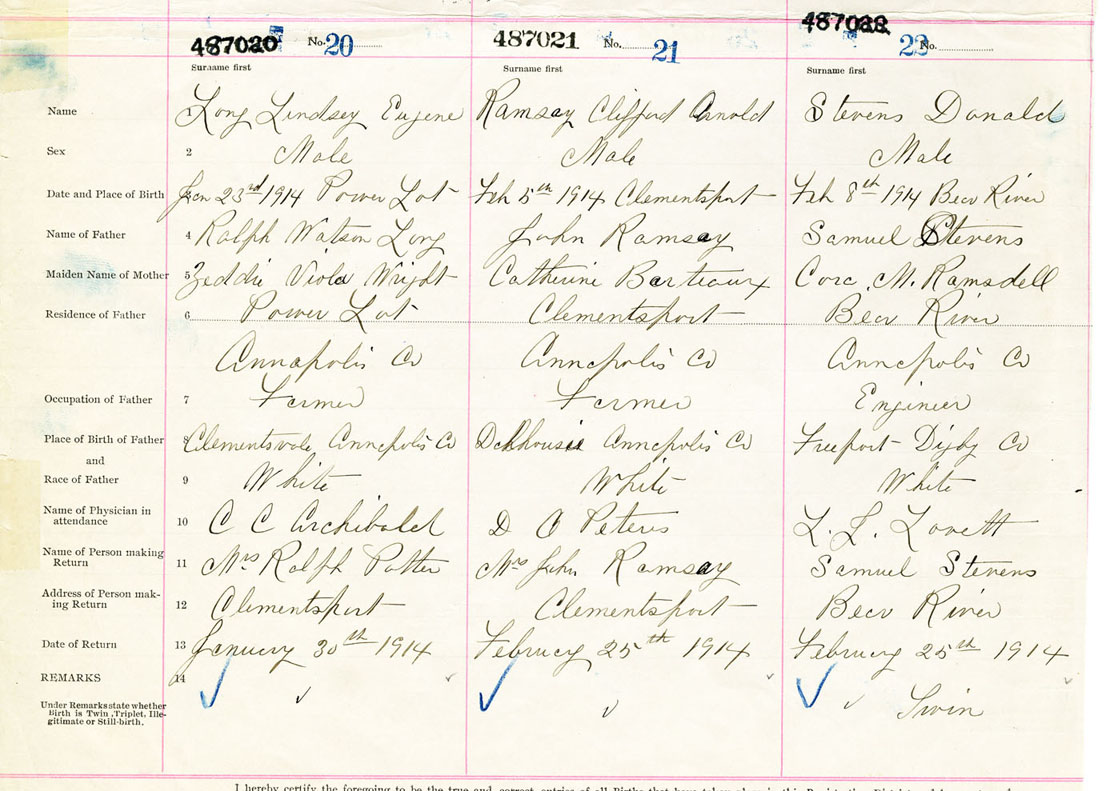 487020 No. 20 487021 No. 21 487022 22 No.
Surname first Surname first Surname first
Name 1 Long Lindsey Eugene Ramsay Clifford Arnold Stevens Donald
Sex 2 Male Male Male
Date and Place of Birth 3 Jan 23rd 1914 Power Lot Feb 5th 1914 Clementsport Feb 8th 1914 Bear River
Name of Father 4 Ralph Watson Long John Ramsay Samuel Stevens
Maiden Name of Mother 5 Zeddie Viola Wright Catherine Barteaux Cora M. Ramsdell
Residence of Father 6 Power Lot Clementsport Bear River
Annapolis Co Annapolis Co Annapolis Co
Occupation of Father 7 Farmer Farmer Engineer
Place of Birth of Father 8 Clementsvale Annapolis Co Annapolis Co Freeport Digby Co
and
Race of Father 9 White White White
Name of Physician in
attendance 10 C C Archibald D O Peters L. L. Lovett
Name of Person making
Return 11 Mrs Ralph Potter Mrs John Ramsay Samuel Stevens
Address of Person mak-
ing Return 12 Clementsport Clementsport Bear River
Date of Return 13 January 30th 1914 February 25th 1914 February 25th 1914
REMARKS 14
Under Remarks state whether
Birth is Twin, Triplet, Ille-
gitimate or Still-birth. Twin
I hereby certify the foregoing to be the true and correct entries of all Births that have taken place in this Registration District